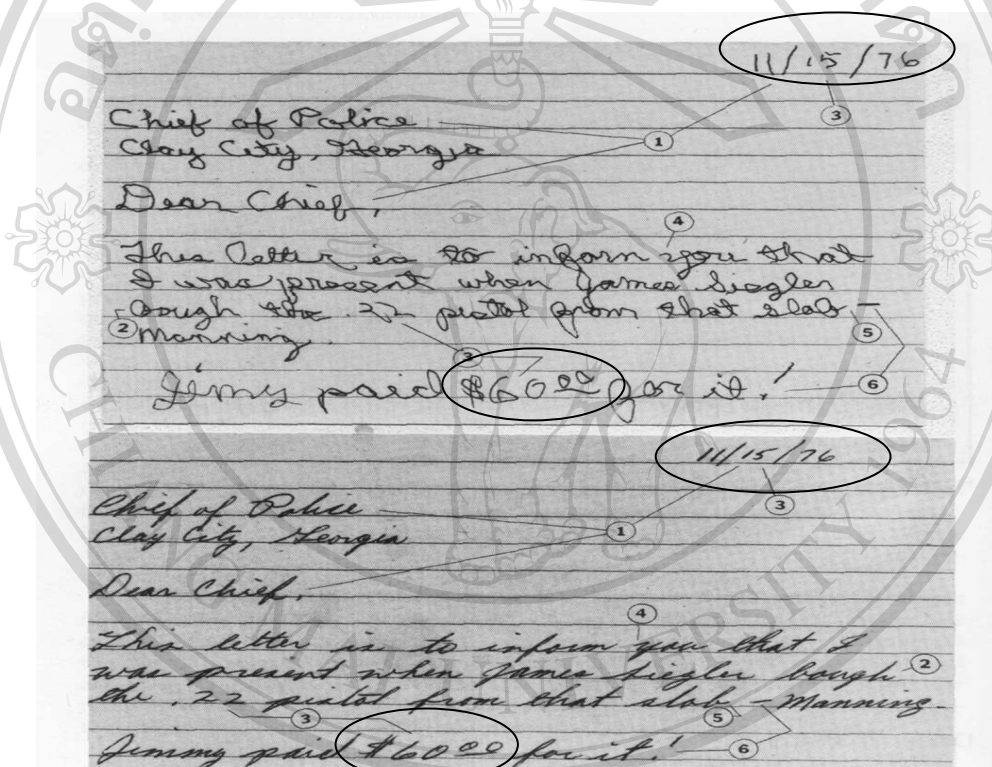 11/15/76
③
Chief of Police
①
Clay City, Georgia
Dear Chief,
④
This letter is to inform you that
I was present when James Siegler
bough the .22 pistol from that slob –
② ⑤
Manning.
③
Jimy paid $60.00 for it!
⑥
11/15/76
③
Chief of Police
①
Clay City, Georgia
Dear Chief,
④
This letter is to inform you that I
was present when James Siegler bough
②
the .22 pistol from that slob – Manning.
③ ⑤
Jimmy paid $60.00 for it!
⑥
MAI UNIVERSITY 1964